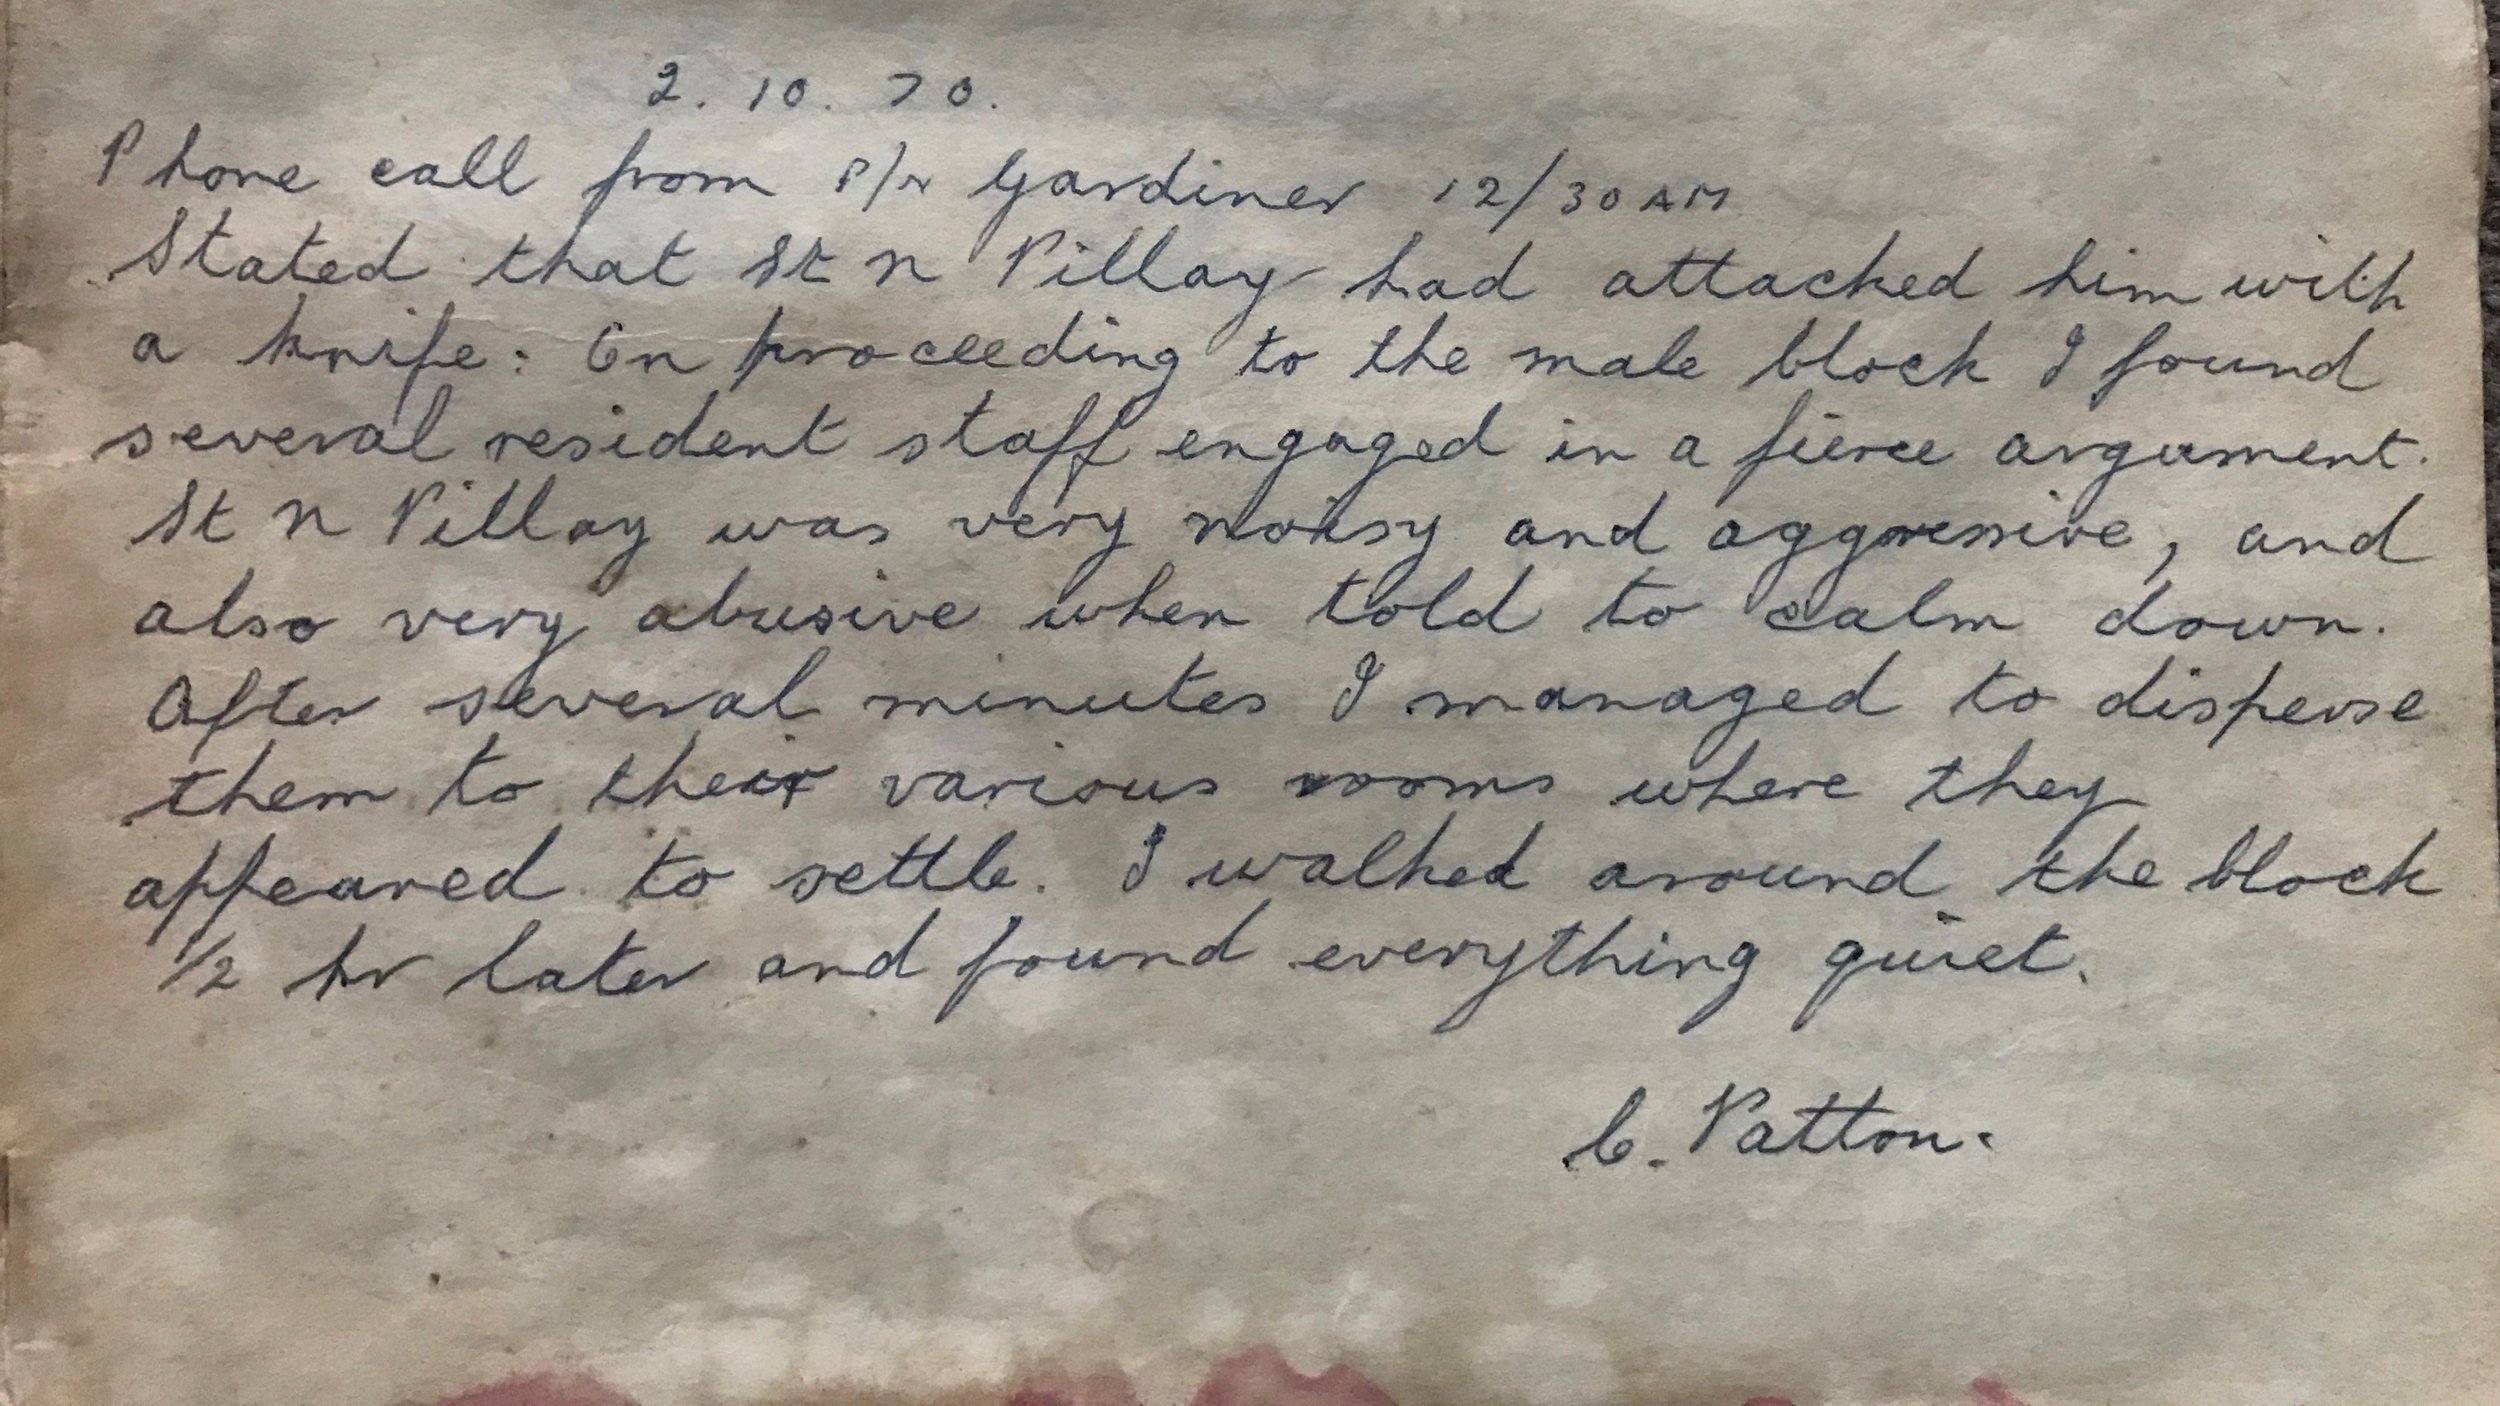 2. 10. 70.
Phone call from P/N Gardiner 12/30 AM
Stated that St N Pillay had attacked him with
a knife: On proceeding to the male block I found
several resident staff engaged in a fierce argument.
St N Pillay was very noisy and aggressive, and
also very abusive when told to calm down.
After several minutes I managed to disperse
them to their various rooms where they
appeared to settle. I walked around the block
1/2 hr later and found everything quiet.
C. Patton.